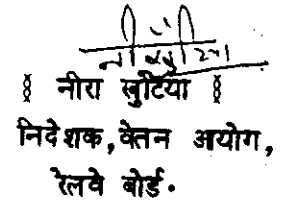 § नीरा खुंटिया §
निदेशक,वेतन आयोग,
रेलवे बोर्ड.